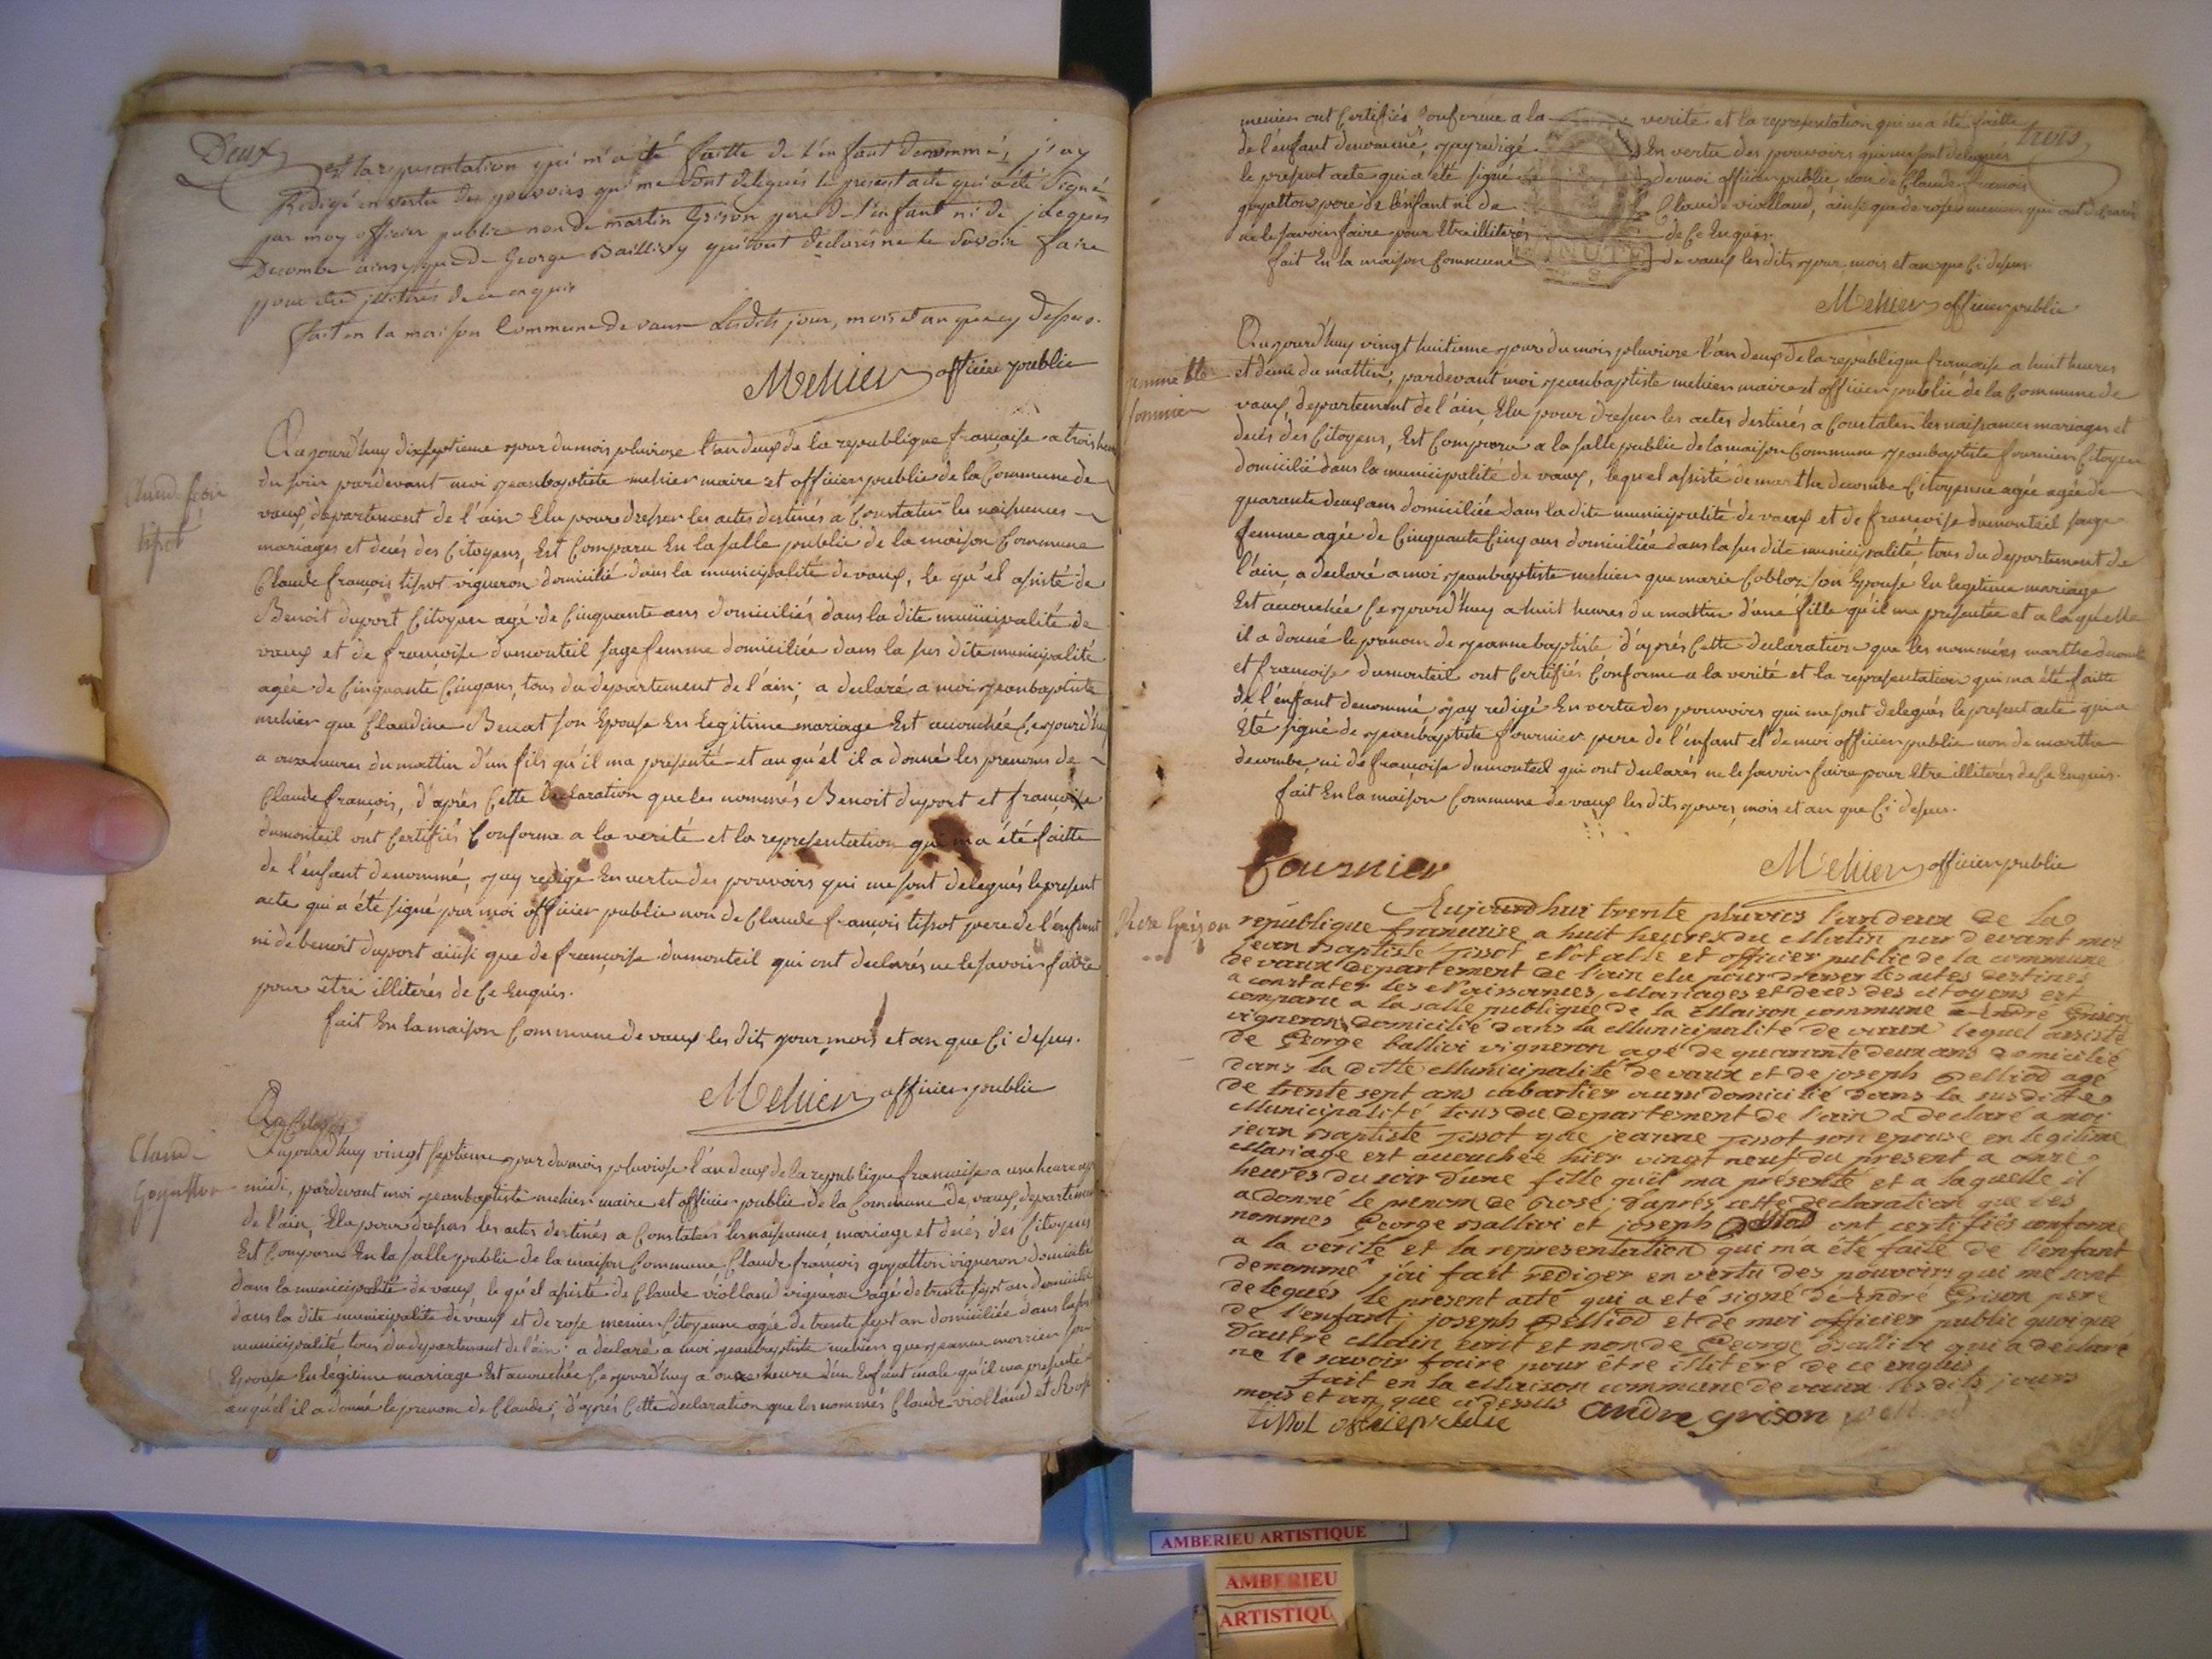 Deux
et la representation qui m'a été faitte de l'enfant denommé, j'ay
Redigé en vertu des pouvoirs qui me sont delegués le present acte qui a été signé
par moy officier public non de martin Grison pere de l'enfant ni de jacques
Decombe ainsy que de George Baillivy qui ont declarés ne le savoir faire
pour etre illiterés de ce enquis
fait en la maison Commune de vaux lesdits jour, mois et an que cy dessus.
Mehier officier public
Claude françois
tissot
Aujourd'huy dixseptieme jour du mois pluviose l'an deux de la republique française a trois heures
du soir pardevant moi jeanbaptiste mehier maire et officier public de la Commune de
vaux, departement de l'ain Elu pour dresser les actes destinés a Constater les naissances
mariages et decés des Citoyens, Est Comparu En la salle public de la maison Commune
Claude françois tissot vigneron domicilié dans la municipalité de vaux, le qu'el assisté de
Benoit duport Citoyen agé de Cinquante ans domiciliés dans la dite municipalité de
vaux et de françoise dumonteil sage femme domiciliée dans la sus dite municipalité
agée de Cinquante Cinq ans, tous du departement de l'ain; a declaré a moi jeanbaptiste
mehier que Claudine son Epouse En legitime mariage Est accouchée Cejourd'huy
a onze heures du mattin d'un fils qu'il ma presenté et au qu'el il a donné les prenoms de
Claude françois, d'aprés Cette declaration que les nommés Benoit duport et françoise
dumonteil ont Certifiés Conforme a la verité et la representation qui ma été faitte
de l'enfant denommé, jay redigé En vertu des pouvoirs qui me sont delegués le present
acte qui a été signé par moi officier public non de Claude françois tissot pere de l'enfant
ni de benoit duport ainsi que de françoise dumonteil qui ont declarés ne le savoir faire
pour être illiterés de Ce Enquis.
fait En la maison Commune de vaux les dits jour mois et an que Ci dessus.
Mehier officier public
Claude
Goyatton
Aujourd'huy vingt septieme jour du mois pluviose l'an deux de la republique francaise a une heure apres
midi, pardevant moi jeanbaptiste mehier maire et officier public de la Commune de vaux, departement
de l'ain, Elu pour dresser les actes destinés a Constater les naissances, mariage et decés des Citoyens
Est Comparu En la salle public de la maison Commune, Claude françois goyatton vigneron domicilié
dans la municipalité de vaux, le qu'el assisté de Claude violland vigneron agé de trente sept an domicilié
dans la dite municipalité de vaux et de rose menier Citoyenne agée de trente sept an domiciliée dans la sus
municipalité tous du departement de l'ain: a declaré a moi jeanbaptiste mehier que jeanne son
Epouse En legitime mariage Est accouchée Cejourd'huy a onze heure d'un Enfant male qu'il ma presenté
au qu'el il a donné le prenom de Claude; d'aprés Cette declaration que les nommés Claude violland et Rose
trois
menier ont Certifiés Conforme a la verité et la representation qui m'a été faitte
de l'enfant denommé, jay redigé En vertu des pouvoirs qui me sont delegués
le present acte qui a été signé de moi officier public non de Claude francois
goyatton pere de l'enfant ni de Claude violland, ainsi que de rose menier qui ont declarés
ne le savoir faire pour Etre illiterés de Ce Enquis.
MINUTE
fait En la maison Commune de vaux les dits jour, mois et an que Ci dessus
Mehier officier public
jeanne bte
fournier
Aujourd'huy vingt huitieme jour du mois pluviose l'an deux de la republique française a huit heures
et demi du mattin, pardevant moi jeanbaptiste mehier maire et officier public de la Commune de
vaux, departement de l'ain, Elu pour dresser les actes destinés a Constater les naissances mariages et
decés des Citoyens, Est Comparu a la salle public de la maison Commune jeanbaptiste fournier Citoyen
domicilié dans la municipalité de vaux, lequel assisté de marthe decombe Citoyenne agée agée de
quarante deux ans domiciliée dans la dite municipalité de vaux et de françoise dumonteil sage
femme agée de Cinquante Cinq ans domiciliée dans la sus dite municipalité tous du departement de
l'ain, a declaré a moi jeanbaptiste mehier que marie Cobloz son Epouse En legitime mariage
Est accouchée Cejourd'huy a huit heures du mattin d'une fille qu'il ma presentée et a laquelle
il a donné le prenom de jeanne baptiste; d'aprés Cette declaration que les nommés marthe decombe
et françoise dumonteil ont Certifiés Conforme a la verité et la representation qui ma été faitte
de l'enfant denommé jay redigé En vertu des pouvoirs qui me sont delegués le present acte qui a
Eté signé de jeanbaptiste fournier pere de l'enfant et de moi officier public non de marthe
decombe, ni de françoise dumonteil qui ont declarés ne le savoir faire pour Etre illiterés de Ce Enquis.
fait En la maison Commune de vaux les dits jours, mois et an que Ci dessus.
fournier
Mehier officier public
Rose Grison
Aujourdhui trente pluvios l'an deux de la
republique francaise a huit heures du Matin par devant moi
jean Baptiste Tissot Notable et officier public de la commune
de vaux departement de l'ain elu pour dresser les actes destines
a constater les Naissances, Mariages et deces des citoyens est
comparu a la salle publique de la Maison commune André Grison
vigneron domicilié dans la Municipalité de vaux lequel assisté
de George ballivi vigneron agé de quarante deux ans domicilié
dans la ditte Municipalité de vaux et de joseph pelliod agé
de trente sept ans cabartier aussi domicilié dans la susditte
Municipalité tous du departement de l'ain a declaré a moi
jean Baptiste Tissot que jeanne Tissot son epouse en legitime
Mariage est accouchée hier vingt neuf du present a onze
heures du soir d'une fille quil ma présenté et a laquelle il
a donné le prenom de Rose; d'aprés cette declaration que les
nommes George Ballivi et joseph pelliod ont certifiés conforme
a la verité et la representation qui m'a été faite de l'enfant
denommé j'ai fait rediger en vertu des pouvoirs qui me sont
delegués le present acte qui a eté signé de André Grison pere
de l'enfant, joseph pelliod et de moi officier public quoique
d'autre Main ecrit et non de George Ballivi qui a declaré
ne le savoir faire pour être illitéré de ce enquis
fait en la Maison commune de vaux les dits jours
mois et an que ci dessus
tissot andre grison
AMBERIEU ARTISTIQUE
AMBERIEU
ARTISTIQU